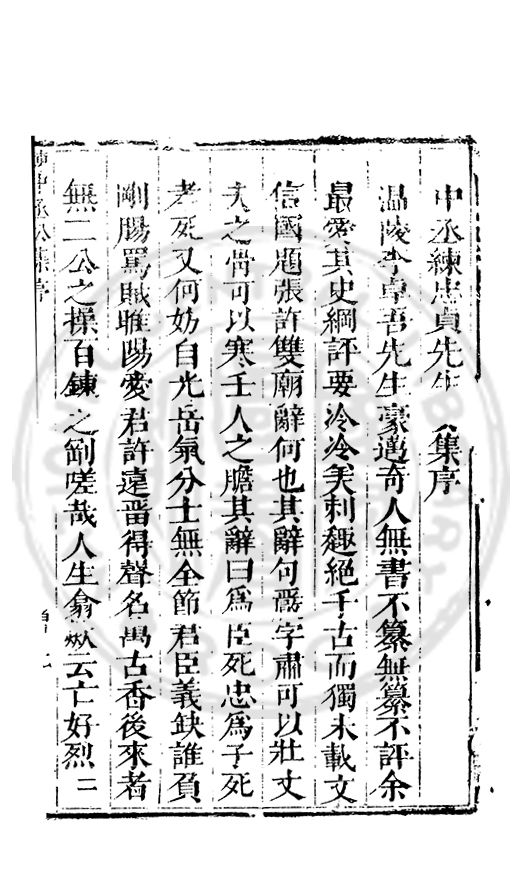 中丞練忠貞先生集序
溫陵李卓吾先生豪邁奇人無書不纂無纂不評余
最愛其史綱評要泠泠美刺趣絕千古而獨未載文
信國題張許雙廟辭何也其辭句嚴字肅可以壯丈
夫之骨可以寒壬人之膽其辭曰為臣死忠為子死
孝死又何妨自光岳氣分士無全節君臣義缺誰負
剛腸罵賊睢陽愛君許遠畱得聲名萬古香後來者
無二公之操百鍊之剛嗟哉人生翕歘云亡好烈
中丞公集序